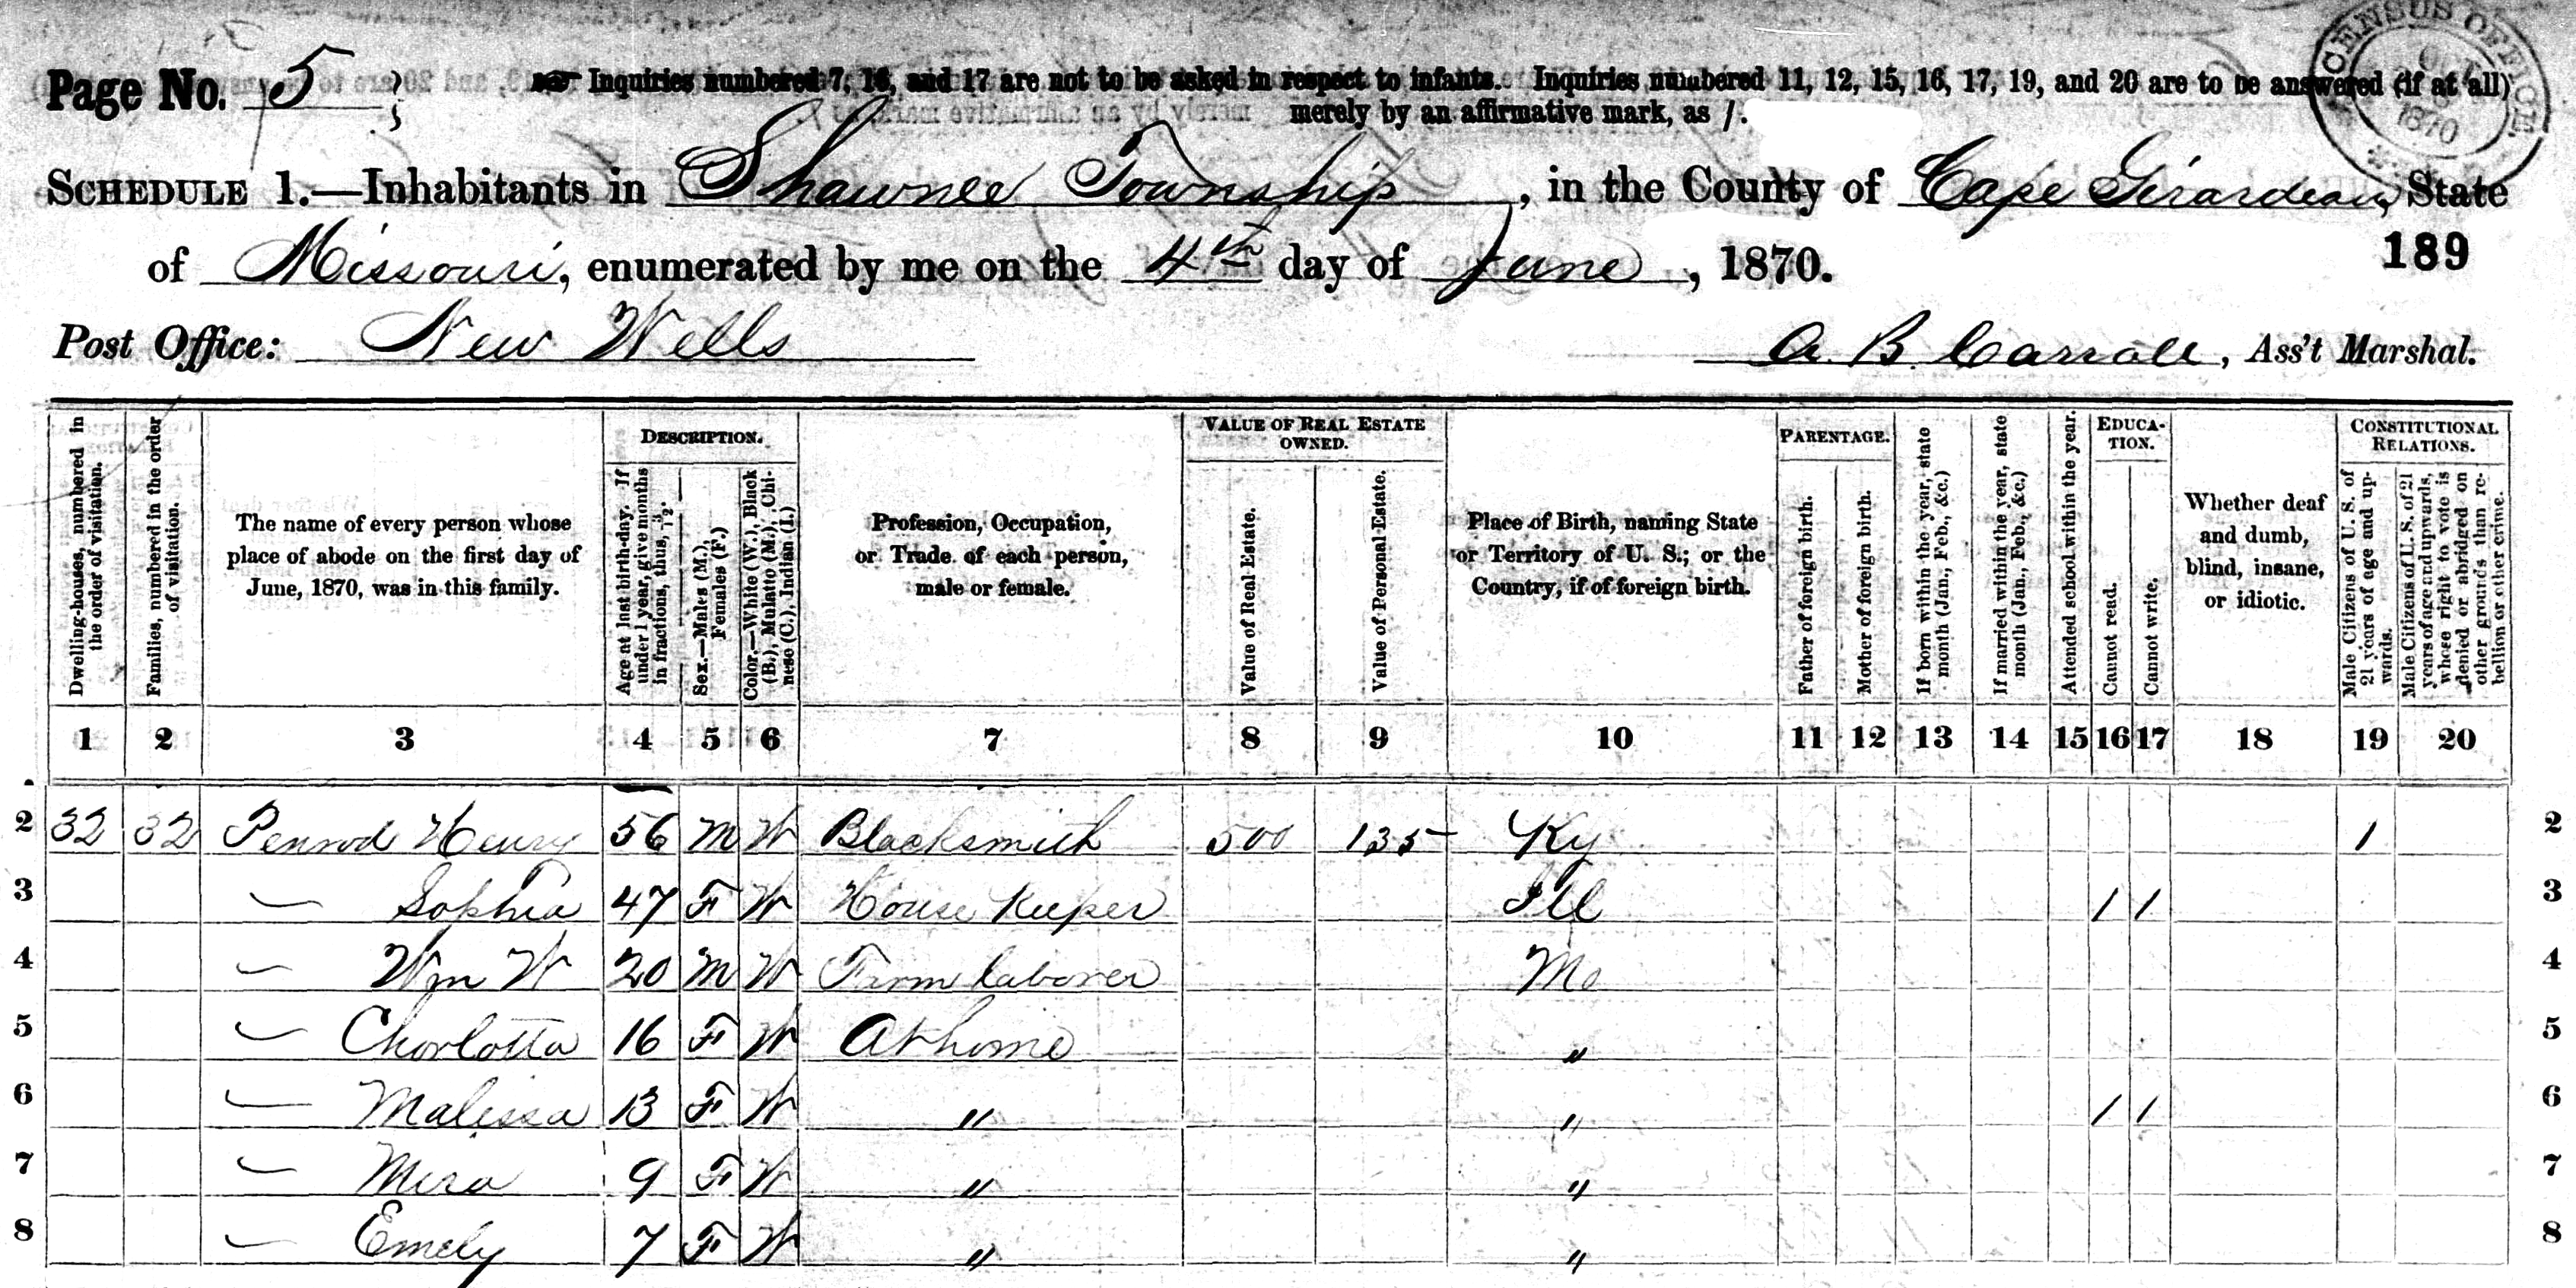 Page No. 5
Inquiries numbered 7, 16, and 17 are not to be asked in respect to infants. Inquiries numbered 11, 12, 15, 16, 17, 19, and 20 are to be answered (if at all)
merely by an affirmative mark, as /.
CENSUS OFFICE
1870
SCHEDULE 1.—Inhabitants in Shawnee Township, in the County of Cape Girardeau, State
of Missouri, enumerated by me on the 4th day of June, 1870.
189
Post Office: New Wells
A. B. Carroll, Ass't Marshal.
Dwelling-houses, numbered in the order of visitation.
Families, numbered in the order of visitation.
The name of every person whose place of abode on the first day of June, 1870, was in this family.
DESCRIPTION.
Age at last birth-day. If under 1 year, give months in fractions, thus, 3/12.
Sex.—Males (M.), Females (F.)
Color.—White (W.), Black (B.), Mulatto (M.), Chinese (C.), Indian (I.)
Profession, Occupation, or Trade of each person, male or female.
VALUE OF REAL ESTATE OWNED.
Value of Real Estate.
Value of Personal Estate.
Place of Birth, naming State or Territory of U. S.; or the Country, if of foreign birth.
PARENTAGE.
Father of foreign birth.
Mother of foreign birth.
If born within the year, state month (Jan., Feb., &c.)
If married within the year, state month (Jan., Feb., &c.)
Attended school within the year.
EDUCA-TION.
Cannot read.
Cannot write.
Whether deaf and dumb, blind, insane, or idiotic.
CONSTITUTIONAL RELATIONS.
Male Citizens of U. S. of 21 years of age and upwards.
Male Citizens of U. S. of 21 years of age and upwards, whose right to vote is denied or abridged on other grounds than rebellion or other crime.
1 2 3 4 5 6 7 8 9 10 11 12 13 14 15 16 17 18 19 20
2 32 32 Penrod Henry 56 M W Blacksmith 500 135 Ky 1 2
3 — Sophia 47 F W House Keeper Ill / / 3
4 — Wm W 20 M W Farm laborer Mo 4
5 — Chorlotta 16 F W At home " 5
6 — Malissa 13 F W " " / / 6
7 — Mira 9 F W " " 7
8 — Emely 7 F W " " 8